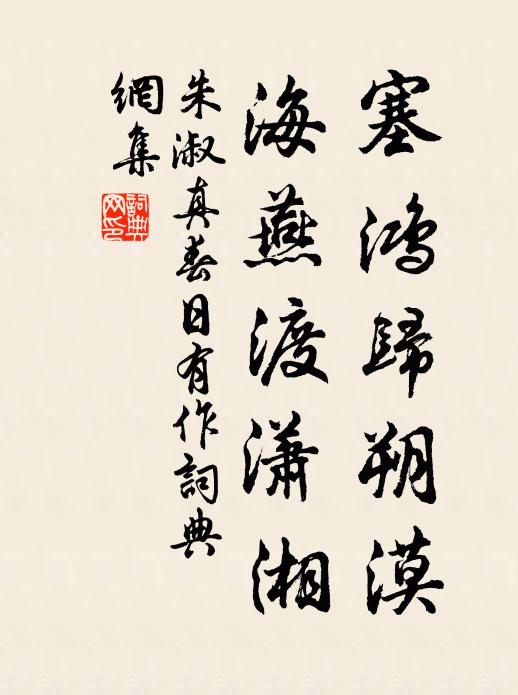 塞鴻歸朔漠
海燕渡瀟湘
朱淑真春日有作詞典
網集
詞典網印